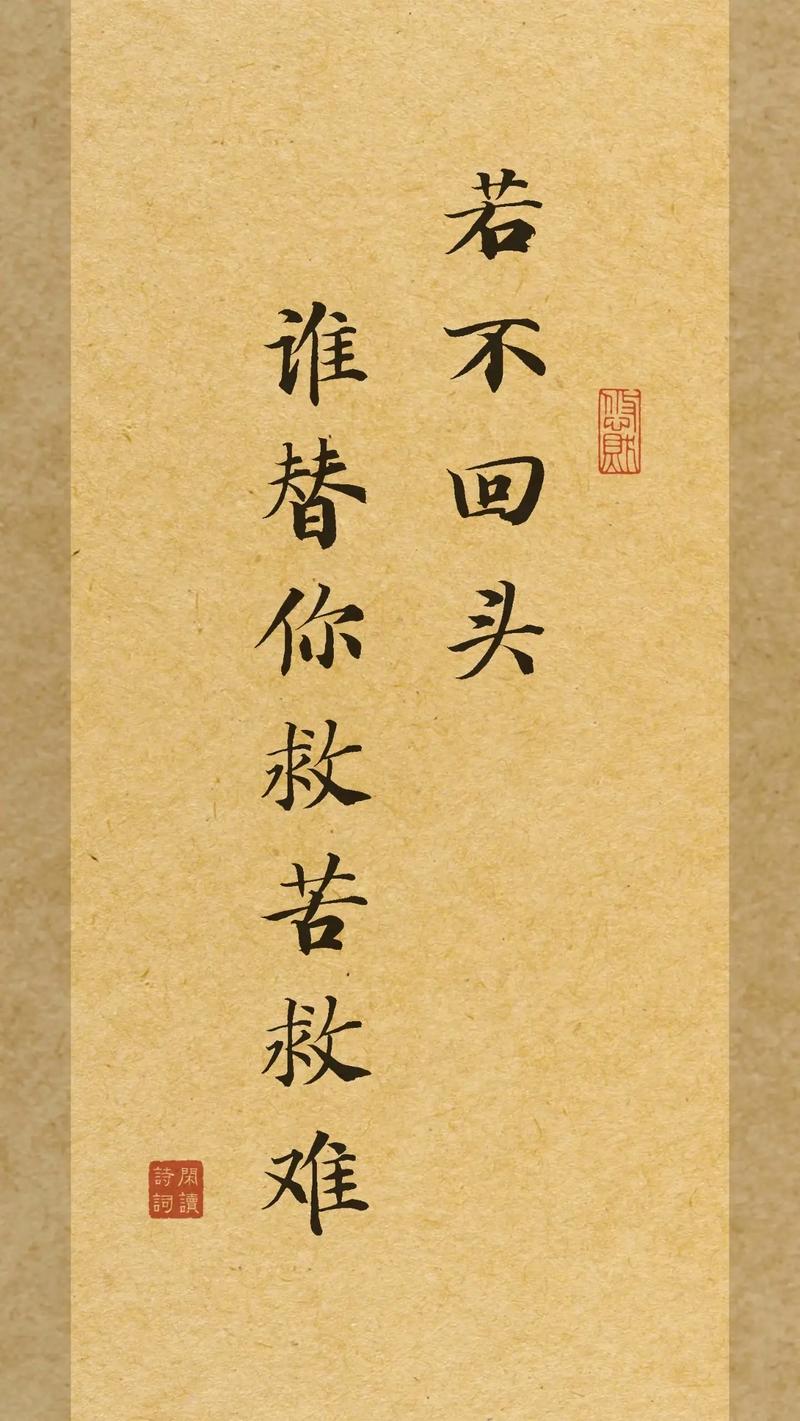 若不回头
谁替你救苦救难
閑讀
詩詞